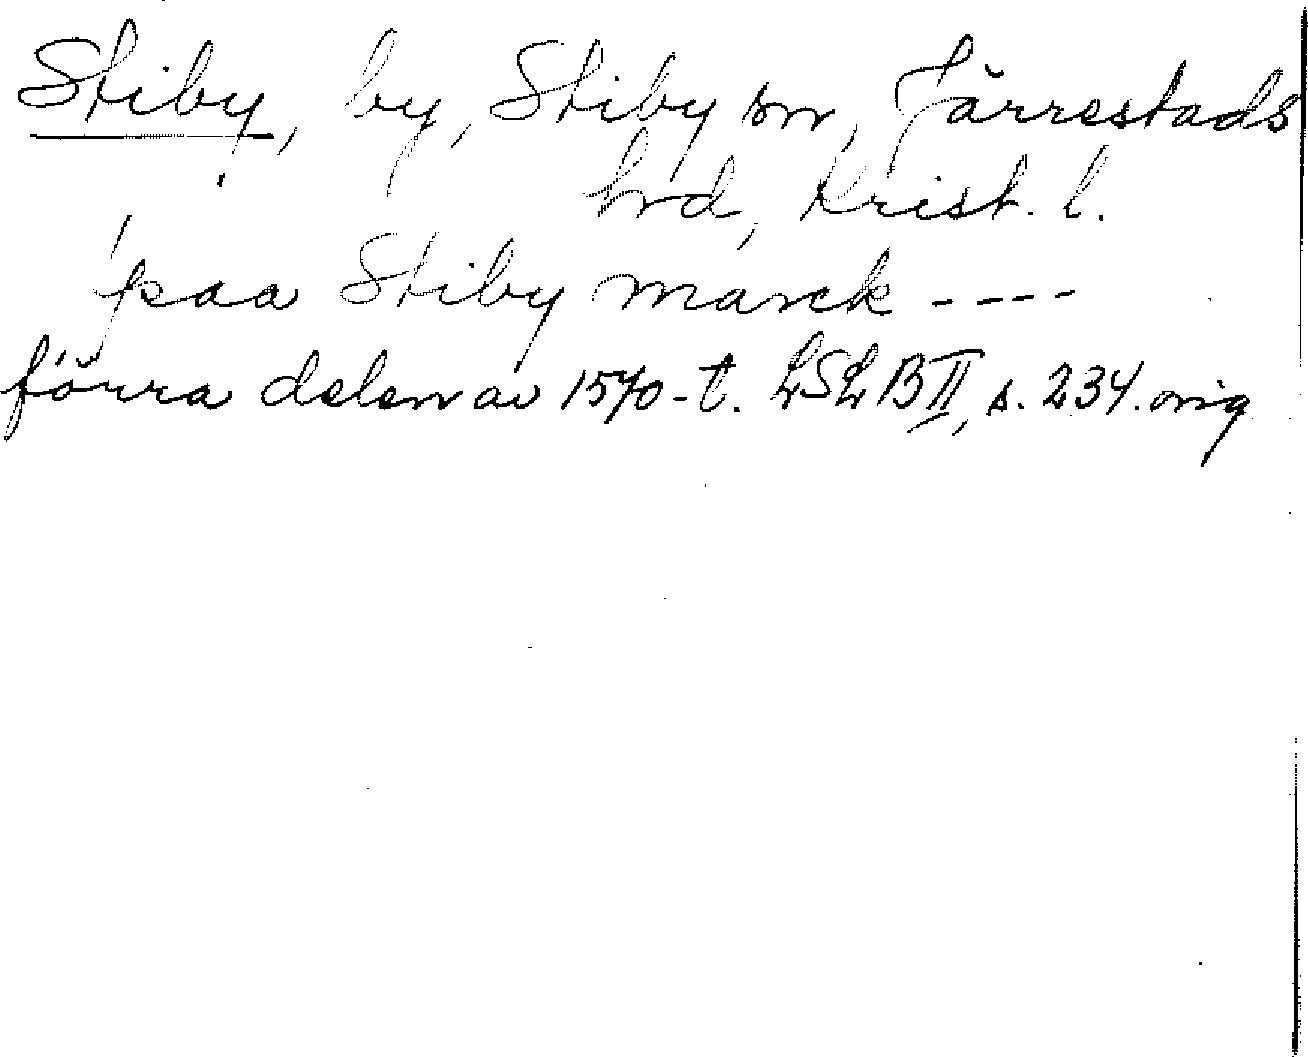 Stiby, by, Stiby sn, Järrestads
hrd, Krist. l.
paa Stiby marck ----
förra delen av 1570-t. LSLB II, s. 234. orig